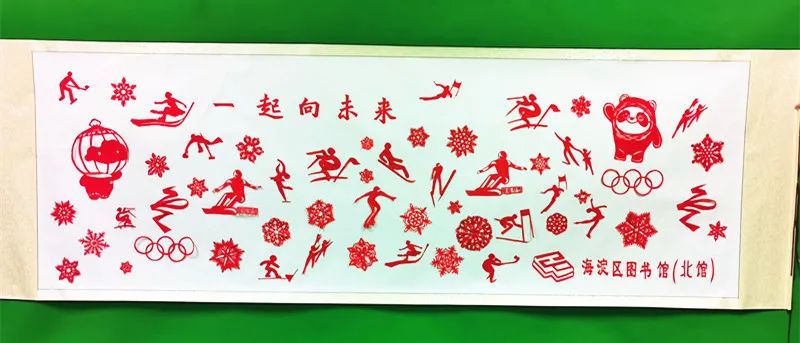 一起向未来
海淀区图书馆(北馆)